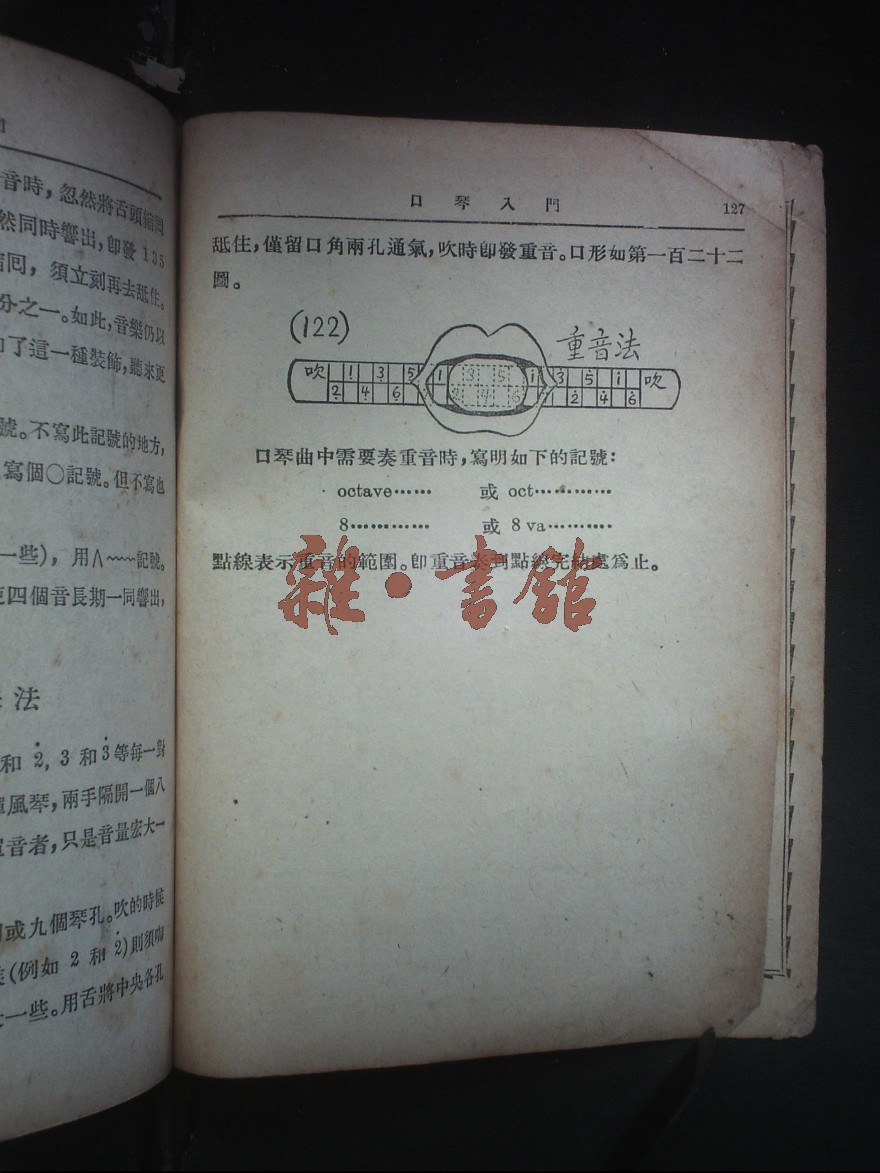 音時，忽然將舌頭縮
然同時響出，即發 135
須立刻再去舐住。
分之一。如此，音樂仍以
了這一種裝飾，聽來更
號。不寫此記號的地方，
寫個〇記號。但不寫也
一些），用∧﹏﹏記號。
四個音長期一同響出，
法
和 2̇, 3 和 3̇ 等每一對
風琴，兩手隔開一個八
音者，只是音量宏大一
或九個琴孔。吹的時候
(例如 2 和 2̇) 則須
一些。用舌將中央各孔
口琴入門 127
舐住，僅留口角兩孔通氣，吹時卽發重音。口形如第一百二十二
圖。
(122) 重音法
吹 1 3 5 1 3 5 1 3 5 i 吹
2 4 6 2 4 6 1 2 4 6
口琴曲中需要奏重音時，寫明如下的記號：
octave…… 或 oct…………
8………… 或 8 va………
點線表示重音的範圍。卽重音奏到點線完結處爲止。
雜·書館